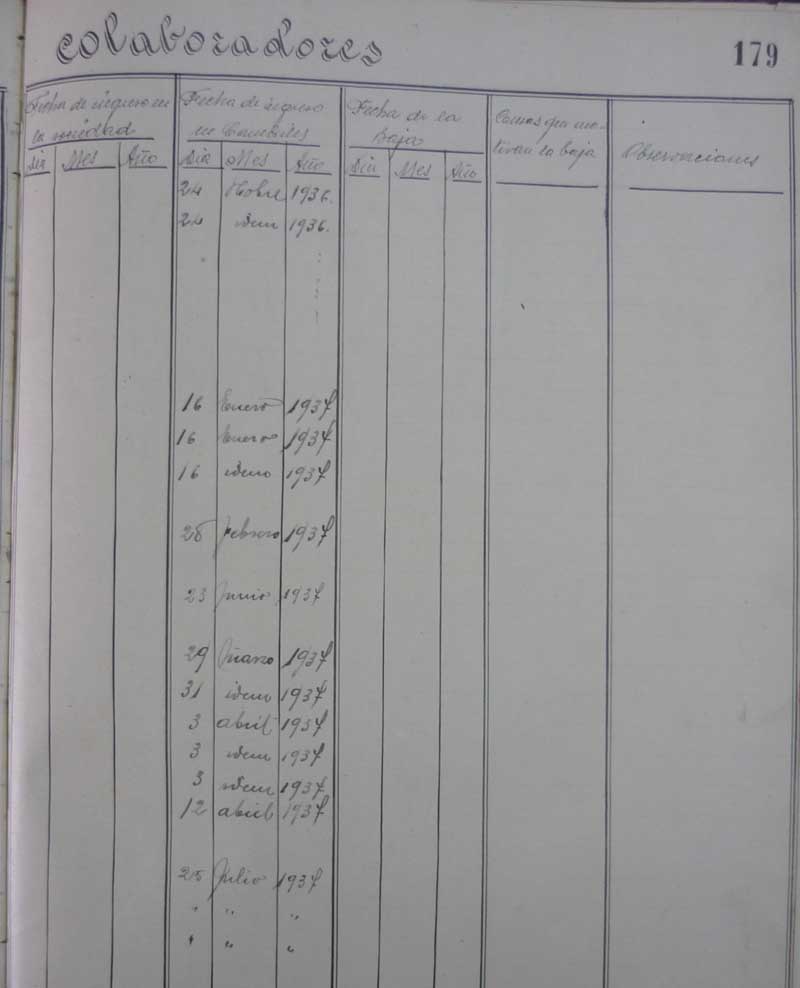 colaboradores
179
Fecha de ingreso en la sociedad
Fecha de ingreso en
Fecha de la Baja
Causas que motivan la baja
Observaciones
Dia Mes Año
Dia Mes Año
Dia Mes Año
24 1936.
24 idem 1936.
16 Enero 1937
16 Enero 1937
16 idem 1937
28 febrero 1937
23 Junio 1937
29 Marzo 1937
31 idem 1937
3 abril 1937
3 idem 1937
3 idem 1937
12 abril 1937
25 Julio 1937
" " "
" " "